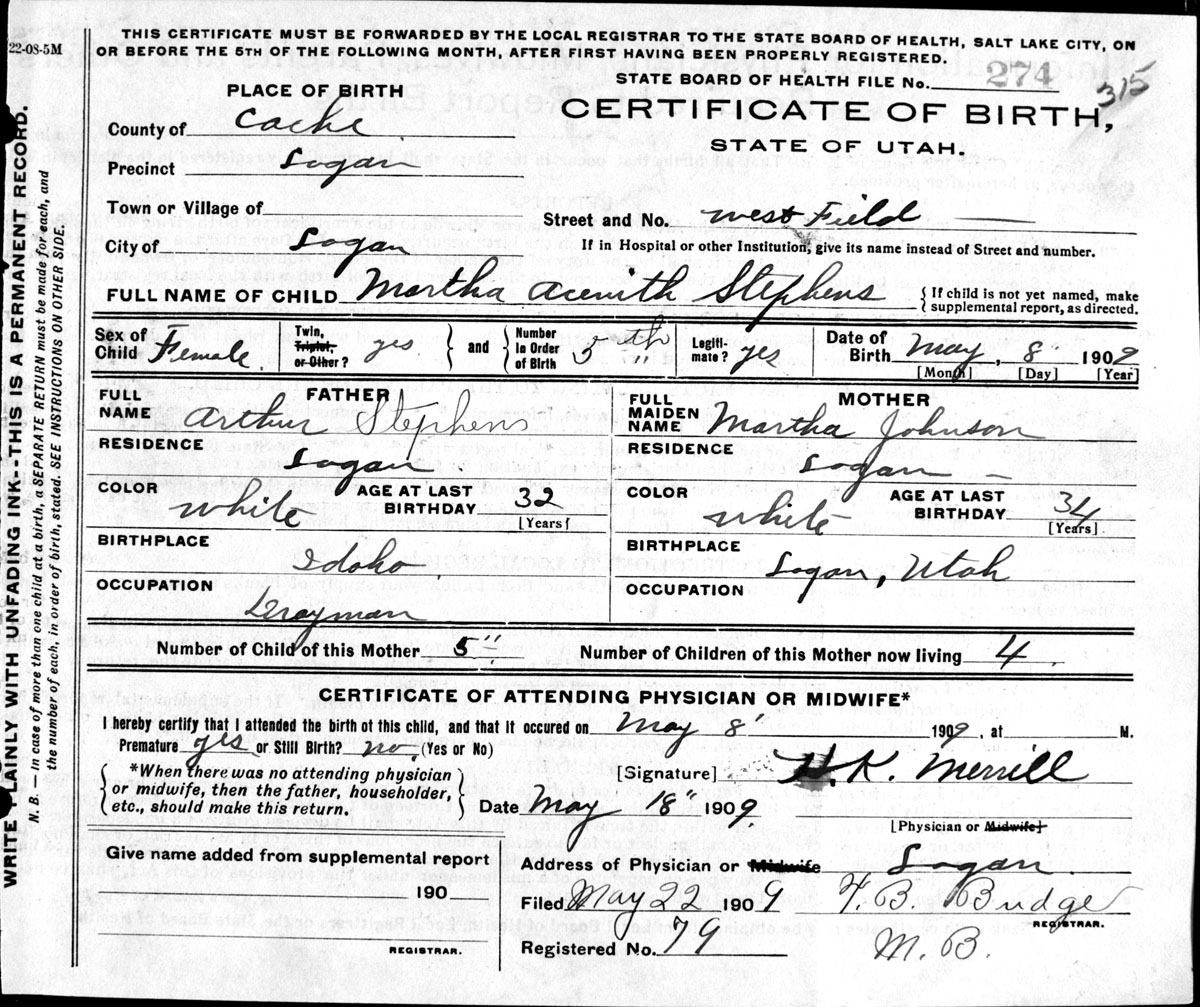 22-08-5M
THIS CERTIFICATE MUST BE FORWARDED BY THE LOCAL REGISTRAR TO THE STATE BOARD OF HEALTH, SALT LAKE CITY, ON
OR BEFORE THE 5TH OF THE FOLLOWING MONTH, AFTER FIRST HAVING BEEN PROPERLY REGISTERED.
STATE BOARD OF HEALTH FILE No. 274 315
PLACE OF BIRTH
CERTIFICATE OF BIRTH,
STATE OF UTAH.
County of Cache
Precinct Logan
Town or Village of
Street and No. West Field
City of Logan
If in Hospital or other Institution, give its name instead of Street and number.
FULL NAME OF CHILD Martha Acenith Stephens
{If child is not yet named, make
supplemental report, as directed.
Sex of Child Female
Twin, Triplet, or Other? yes
and
Number In Order of Birth 5th "
Legiti-mate? yes
Date of Birth May, 8, 1909
[Month] [Day] [Year]
FATHER
FULL NAME Arthur Stephens
RESIDENCE Logan
COLOR White
AGE AT LAST BIRTHDAY 32
[Years]
BIRTHPLACE Idaho
OCCUPATION Drayman
MOTHER
FULL MAIDEN NAME Martha Johnson
RESIDENCE Logan
COLOR White
AGE AT LAST BIRTHDAY 34
[Years]
BIRTHPLACE Logan, Utah
OCCUPATION
Number of Child of this Mother 5"
Number of Children of this Mother now living 4
CERTIFICATE OF ATTENDING PHYSICIAN OR MIDWIFE*
I hereby certify that I attended the birth of this child, and that it occured on May 8' 1909, at M.
Premature yes or Still Birth? no (Yes or No)
{*When there was no attending physician
or midwife, then the father, householder,
etc., should make this return.}
[Signature] H.K. Merrill
Date May 18" 1909
[Physician or Midwife]
Give name added from supplemental report
190
REGISTRAR.
Address of Physician or Midwife Logan
Filed May 22 1909
Registered No. 79
B. Budge
REGISTRAR.
M. B.
WRITE PLAINLY WITH UNFADING INK--THIS IS A PERMANENT RECORD.
N. B.—In case of more than one child at a birth, a SEPARATE RETURN must be made for each, and
the number of each, in order of birth, stated. SEE INSTRUCTIONS ON OTHER SIDE.